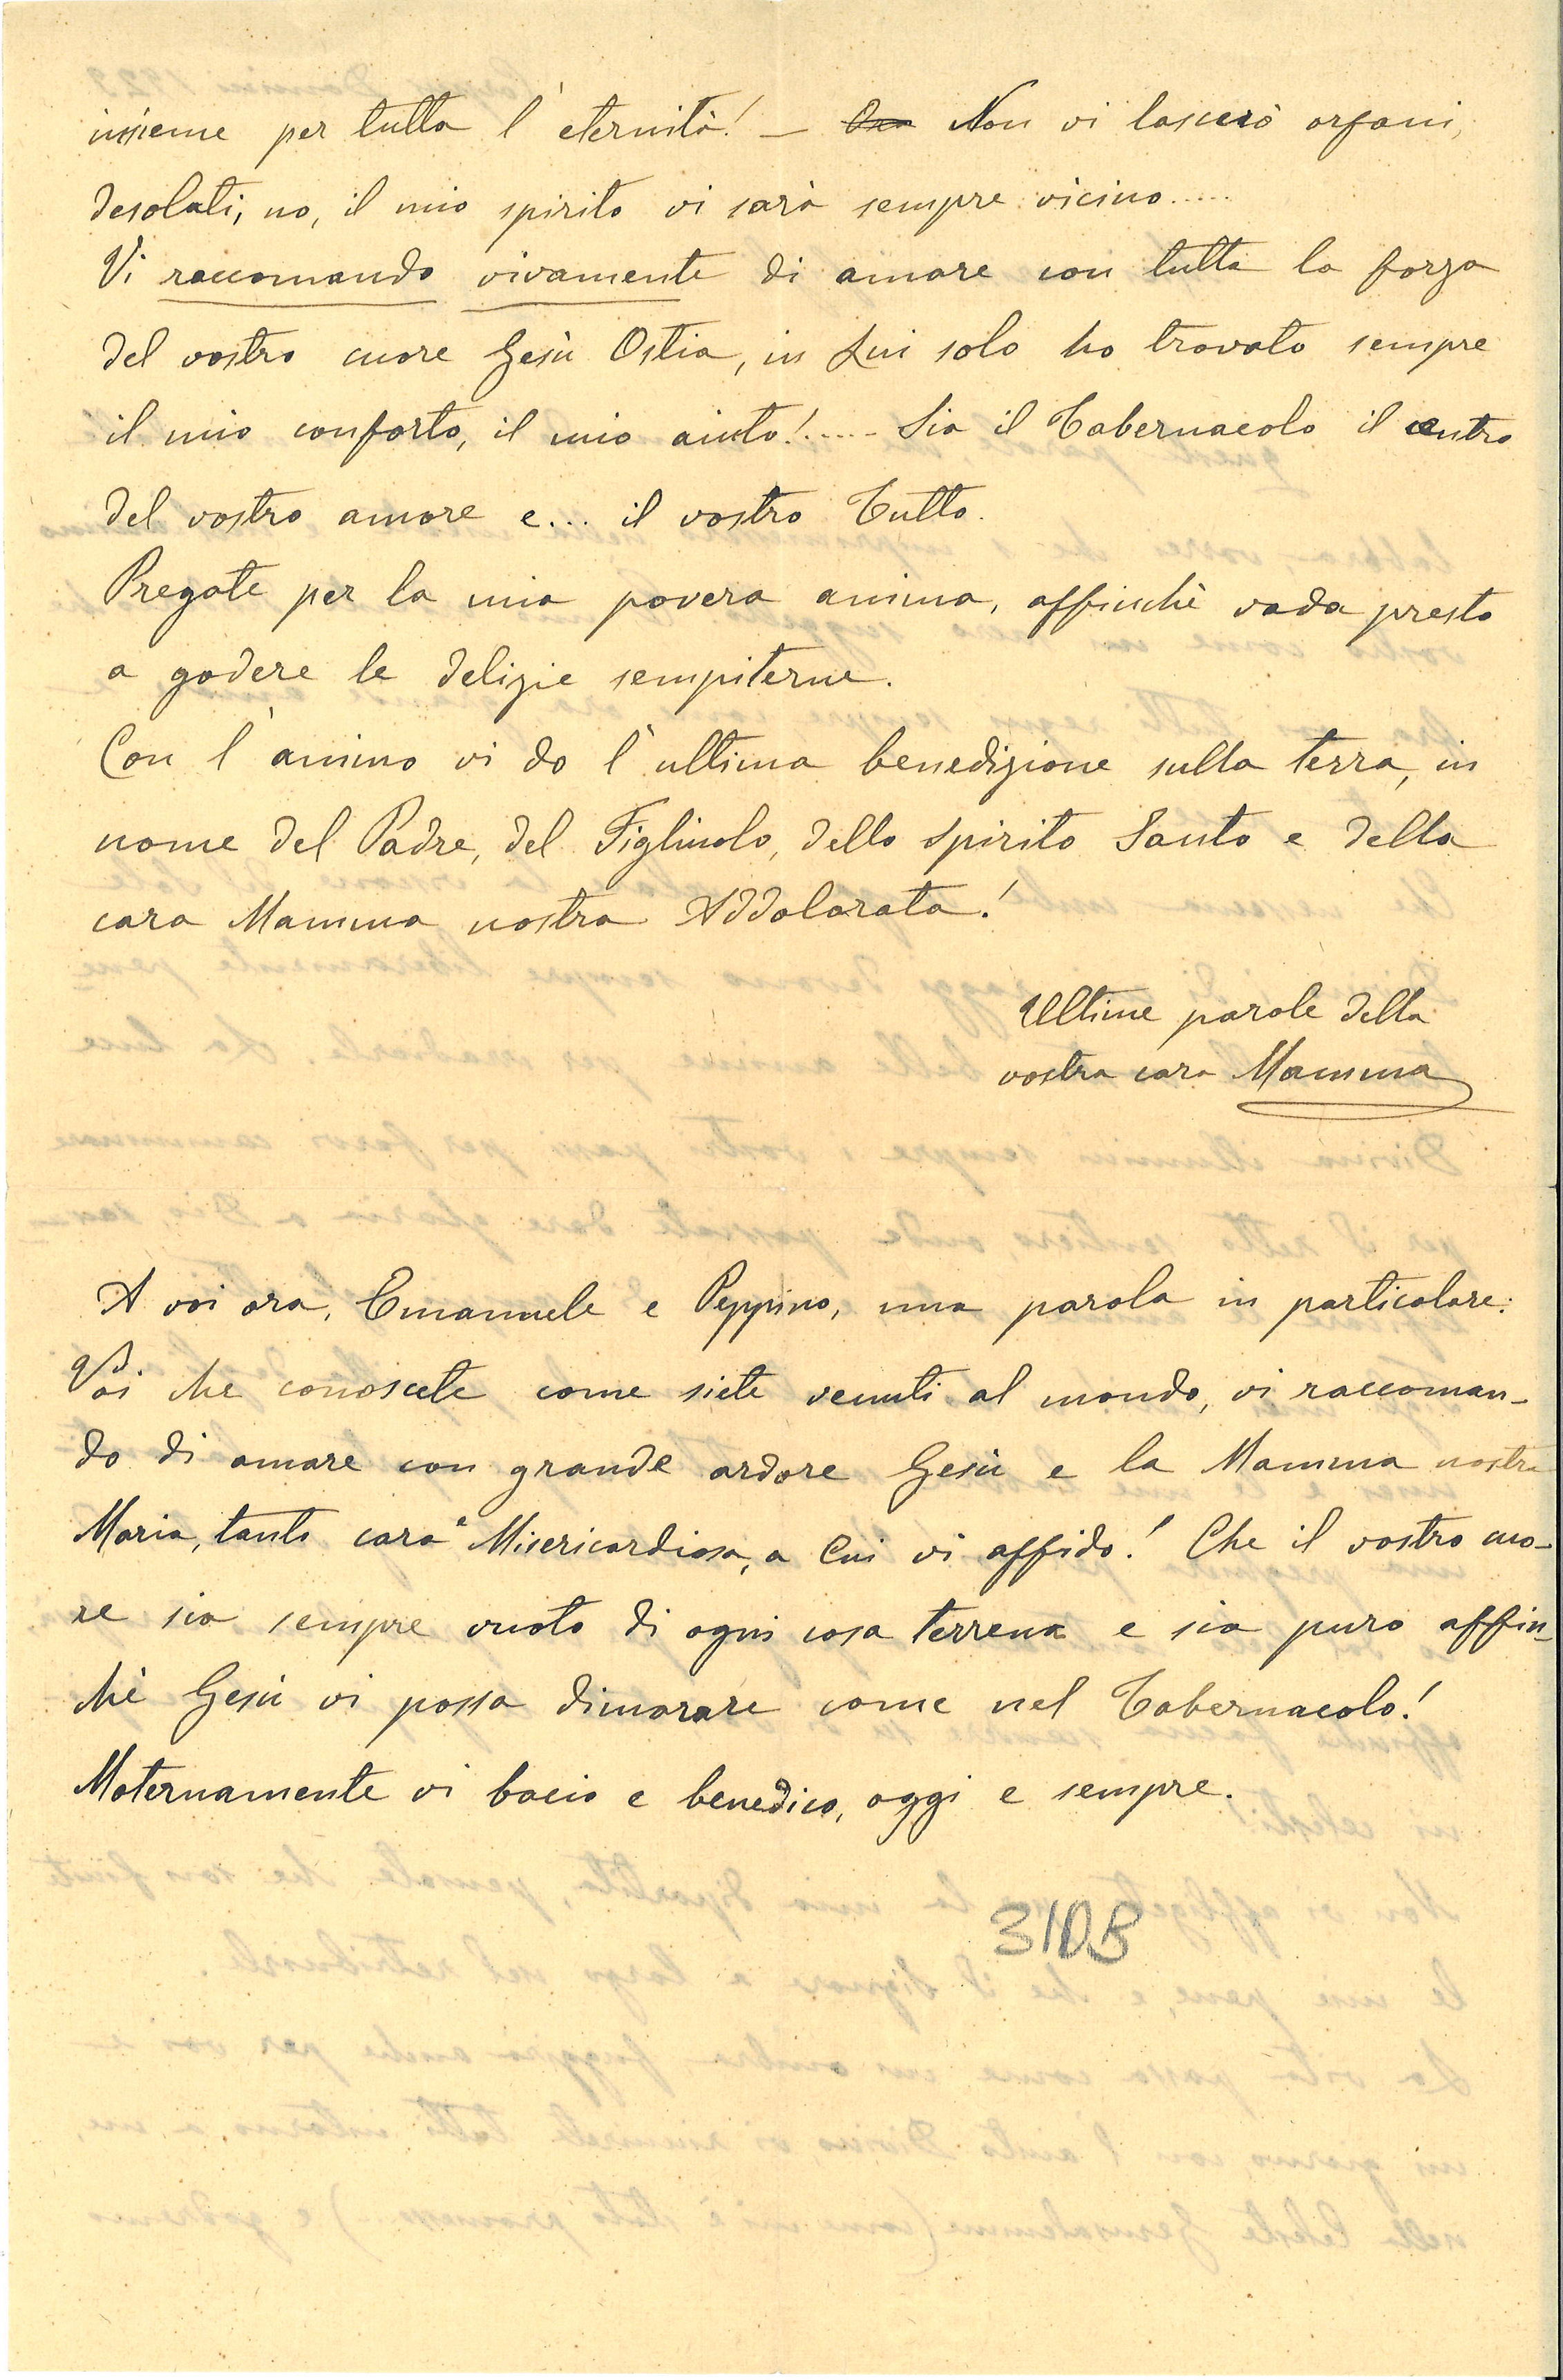 insieme per tutta l'eternità! — Ora Non vi lascerò orfani,
desolati, no, il mio spirito vi sarà sempre vicino.....
Vi raccomando vivamente di amare con tutta la forza
del vostro cuore Gesù Ostia, in Lui solo ho trovato sempre
il mio conforto, il mio aiuto!..... Sia il Tabernacolo il centro
del vostro amore e... il vostro Tutto.
Pregate per la mia povera anima, affinchè vada presto
a godere le delizie sempiterne.
Con l'animo vi do l'ultima benedizione sulla terra, in
nome del Padre, del Figliuolo, dello Spirito Santo e della
cara Mamma nostra Addolorata!
Ultime parole della
vostra cara Mamma
A voi ora, Emanuele e Peppino, una parola in particolare:
Voi che conoscete come siete venuti al mondo, vi raccoman-
do di amare con grande ardore Gesù e la Mamma nostra
Maria, tanto cara e Misericordiosa, a Cui vi affido! Che il vostro cuo-
re sia sempre vuoto di ogni cosa terrena e sia puro affin-
chè Gesù vi possa dimorare come nel Tabernacolo!
Maternamente vi bacio e benedico, oggi e sempre.
310B